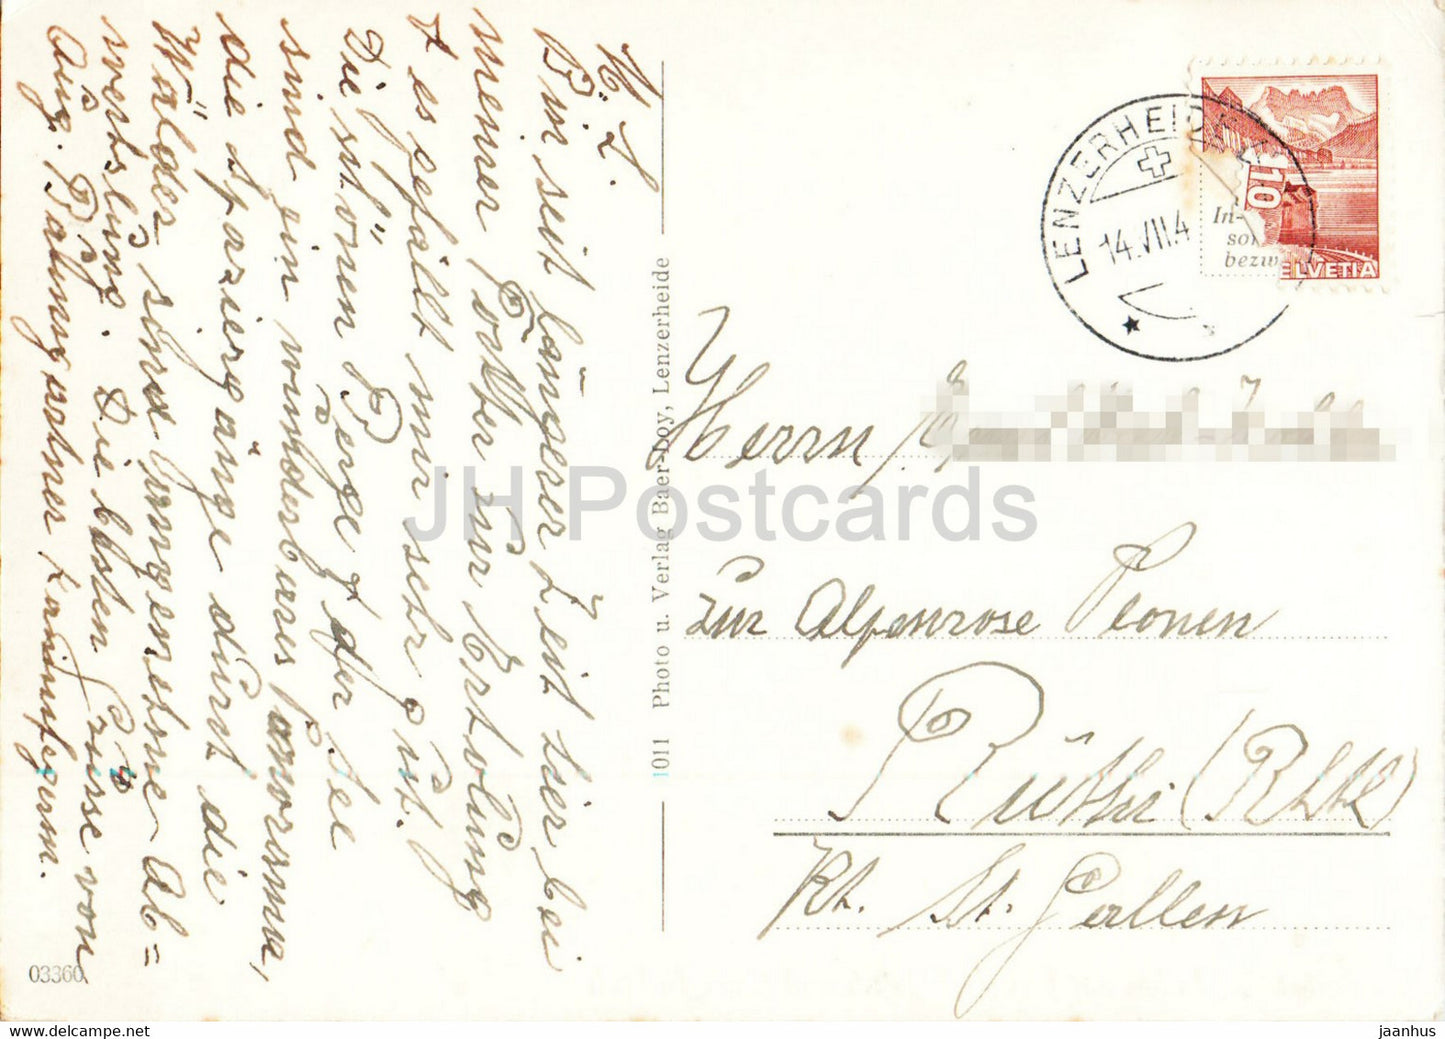 M. L.
Bin seit längerer Zeit hier bei
meiner Tochter zur Erholung
& es gefällt mir sehr gut.
Die schönen Berge & der See
sind ein wunderbares Panorama,
die Spaziergänge durch die
Wälder sind angenehme Ab=
wechslung. Die besten Grüsse von
Aug. Baumgartner
03360
1011 Photo u. Verlag Baer-Loy, Lenzerheide
LENZERHEIDE
14.VII.4
10
In-
son
bezw
HELVETIA
Herrn
zur Alpenrose
Rüthi (Rhtl)
Kt. St. Gallen
JH Postcards
www.delcampe.net
jaanhus